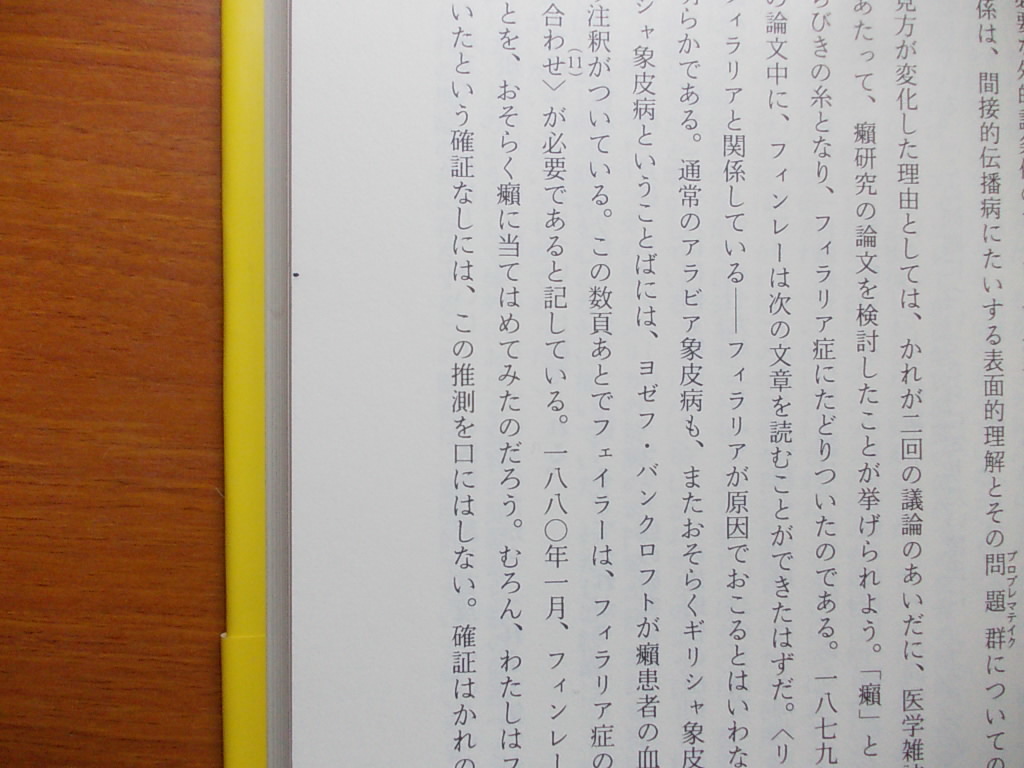 係は、間接的伝播病にたいする表面的理解とその問題群についての
プロブレマテイク
見方が変化した理由としては、かれが二回の議論のあいだに、医学雑
あたって、癩研究の論文を検討したことが挙げられよう。「癩」と
びきの糸となり、フィラリア症にたどりついたのである。一八七九
論文中に、フィンレーは次の文章を読むことができたはずだ。〈リ
フィラリアと関係している——フィラリアが原因でおこるとはいわな
らかである。通常のアラビア象皮病も、またおそらくギリシャ象皮
シャ象皮病ということばには、ヨゼフ・バンクロフトが癩患者の血
注釈がついている。この数頁あとでフェイラーは、フィラリア症の
(11)
合わせ〉が必要であると記している。一八八〇年一月、フィンレー
とを、おそらく癩に当てはめてみたのだろう。むろん、わたしはフ
いたという確証なしには、この推測を口にはしない。確証はかれの